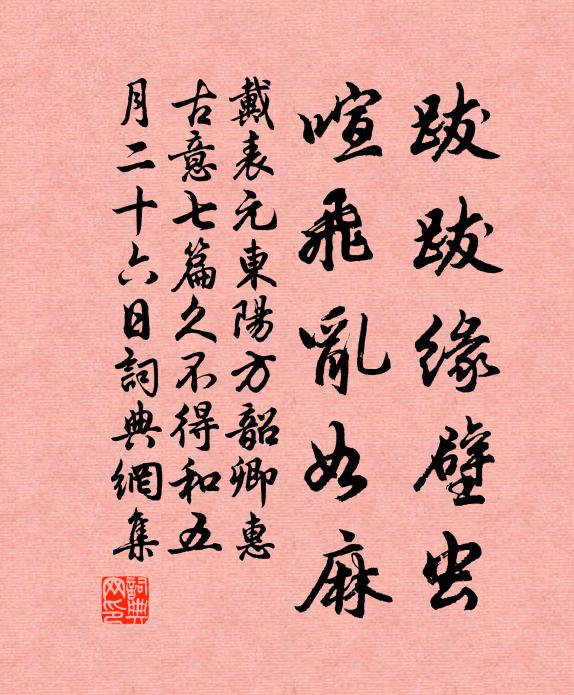 跋跋缘壁虫
喧飛亂如麻
戴表元東陽方韶卿惠
古意七篇久不得和五
月二十六日詞典網集
詞典
网印